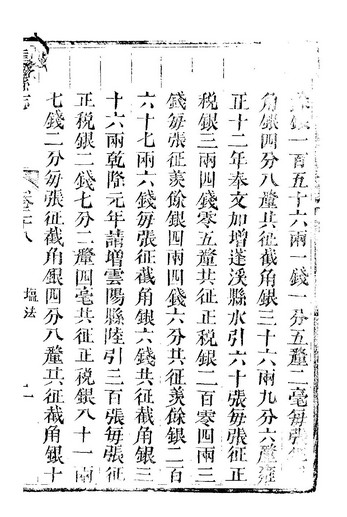 銀一百五十六兩一錢一分五釐二毫每張
角銀四分八釐共征截角銀三十六兩九分六釐雍
正十二年奉文加增蓬溪縣水引六十張每張征正
稅銀三兩四錢零五釐共征正稅銀二百零四兩三
錢每張征羨餘銀四兩四錢六分共征羨餘銀二百
六十七兩六錢每張征截角銀六錢共征截角銀三
十六兩乾隆元年請增雲陽縣陸引三百張每張征
正稅銀二錢七分二釐四毫共征正稅銀八十一兩
七錢二分每張征截角銀四分八釐共征截角銀十
志
卷
塩法